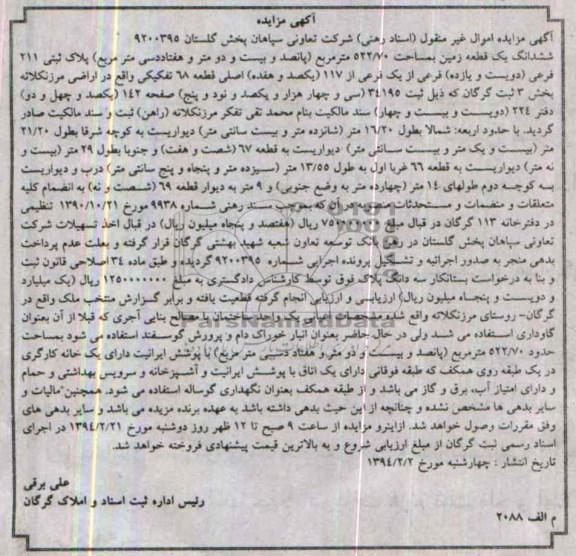 آگهی مزایده
آگهی مزایده اموال غیر منقول (اسناد رهنی) شرکت تعاونی سپاهان پخش گلستان ۹۲۰۰۳۹۵
ششدانگ یک قطعه زمین بمساحت ۵۲۲/۷۰ مترمربع (پانصد و بیست و دو متر و هفتاددسی متر مربع) پلاک ثبتی ۲۱۱
فرعی (دویست و یازده) فرعی از یک فرعی از ۱۱۷ (یکصد و هفده) اصلی قطعه ۶۸ تفکیکی واقع در اراضی مرزنکلاته
بخش ۳ ثبت گرگان که ذیل ثبت ۳۴۱۹۵ (سی و چهار هزار و یکصد و نود و پنج) صفحه ۱۴۲ (یکصد و چهل و دو)
دفتر ۲۲۴ (دویست و بیست و چهار) سند مالکیت بنام محمد تقی تفکر مرزنکلاته (راهن) ثبت و سند مالکیت صادر
گردید. با حدود اربعه: شمالا بطول ۱۶/۲۰ متر (شانزده متر و بیست سانتی متر) دیواریست به کوچه شرقا بطول ۲۱/۲۰
متر (بیست و یک متر و بیست سانتی متر) دیواریست به قطعه ۶۷ (شصت و هفت) و جنوبا بطول ۲۹ متر (بیست و
نه متر) دیواریست به قطعه ۶۶ غربا اول به طول ۱۳/۵۵ متر (سیزده متر و پنجاه و پنج سانتی متر) درب و دیواریست
به کوچه دوم طولهای ۱۴ متر (چهارده متر به وضع جنوبی) و ۹ متر به دیوار قطعه ۶۹ (شصت و نه) به انضمام کلیه
متعلقات و منضمات و مستحدثات منصوبه در آن که بموجب سند رهنی شماره ۹۹۳۸ مورخ ۱۳۹۰/۱۰/۲۱ تنظیمی
در دفترخانه ۱۱۳ گرگان در قبال مبلغ ۷۵۰۰۰۰۰۰۰ ریال (هفتصد و پنجاه میلیون ریال) در قبال اخذ تسهیلات شرکت
تعاونی سپاهان پخش گلستان در رهن بانک توسعه تعاون شعبه شهید بهشتی گرگان قرار گرفته و بعلت عدم پرداخت
بدهی منجر به صدور اجرائیه و تشکیل پرونده اجرایی شماره ۹۲۰۰۳۹۵ گردیده و طبق ماده ۳۴ اصلاحی قانون ثبت
و بنا به درخواست بستانکار سه دانگ پلاک فوق توسط کارشناس دادگستری به مبلغ ۱۲۵۰۰۰۰۰۰۰ ریال (یک میلیارد
و دویست و پنجاه میلیون ریال) ارزیابی و ارزیابی انجام گرفته قطعیت یافته و برابر گزارش منتخب ملک واقع در
گرگان- روستای مرزنکلاته واقع شده مشخصات اعیانی یک واحد ساختمان با مصالح بنایی آجری که قبلا از آن بعنوان
گاوداری استفاده می شد ولی در حال حاضر بعنوان انبار خوراک دام و پرورش گوسفند استفاده می شود بمساحت
حدود ۵۲۲/۷۰ مترمربع (پانصد و بیست و دو متر و هفتاد دسی متر مربع) با پوشش ایرانیت دارای یک خانه کارگری
در یک طبقه روی همکف که طبقه فوقانی دارای یک اتاق با پوشش ایرانیت و آشپزخانه و سرویس بهداشتی و حمام
و دارای امتیاز آب، برق و گاز می باشد و از طبقه همکف بعنوان نگهداری گوساله استفاده می شود. همچنین مالیات و
سایر بدهی ها مشخص نشده و چنانچه از این حیث بدهی داشته باشد به عهده برنده مزیده می باشد و سایر بدهی های
وفق مقررات وصول خواهد شد. ازاینرو مزایده از ساعت ۹ صبح تا ۱۲ ظهر روز دوشنبه مورخ ۱۳۹۴/۲/۲۱ در اجرای
اسناد رسمی ثبت گرگان از مبلغ ارزیابی شروع و به بالاترین قیمت پیشنهادی فروخته خواهد شد.
تاریخ انتشار : چهارشنبه مورخ ۱۳۹۴/۲/۲
علی برقی
رئیس اداره ثبت اسناد و املاک گرگان
م الف ۲۰۸۸
ParsNamadData